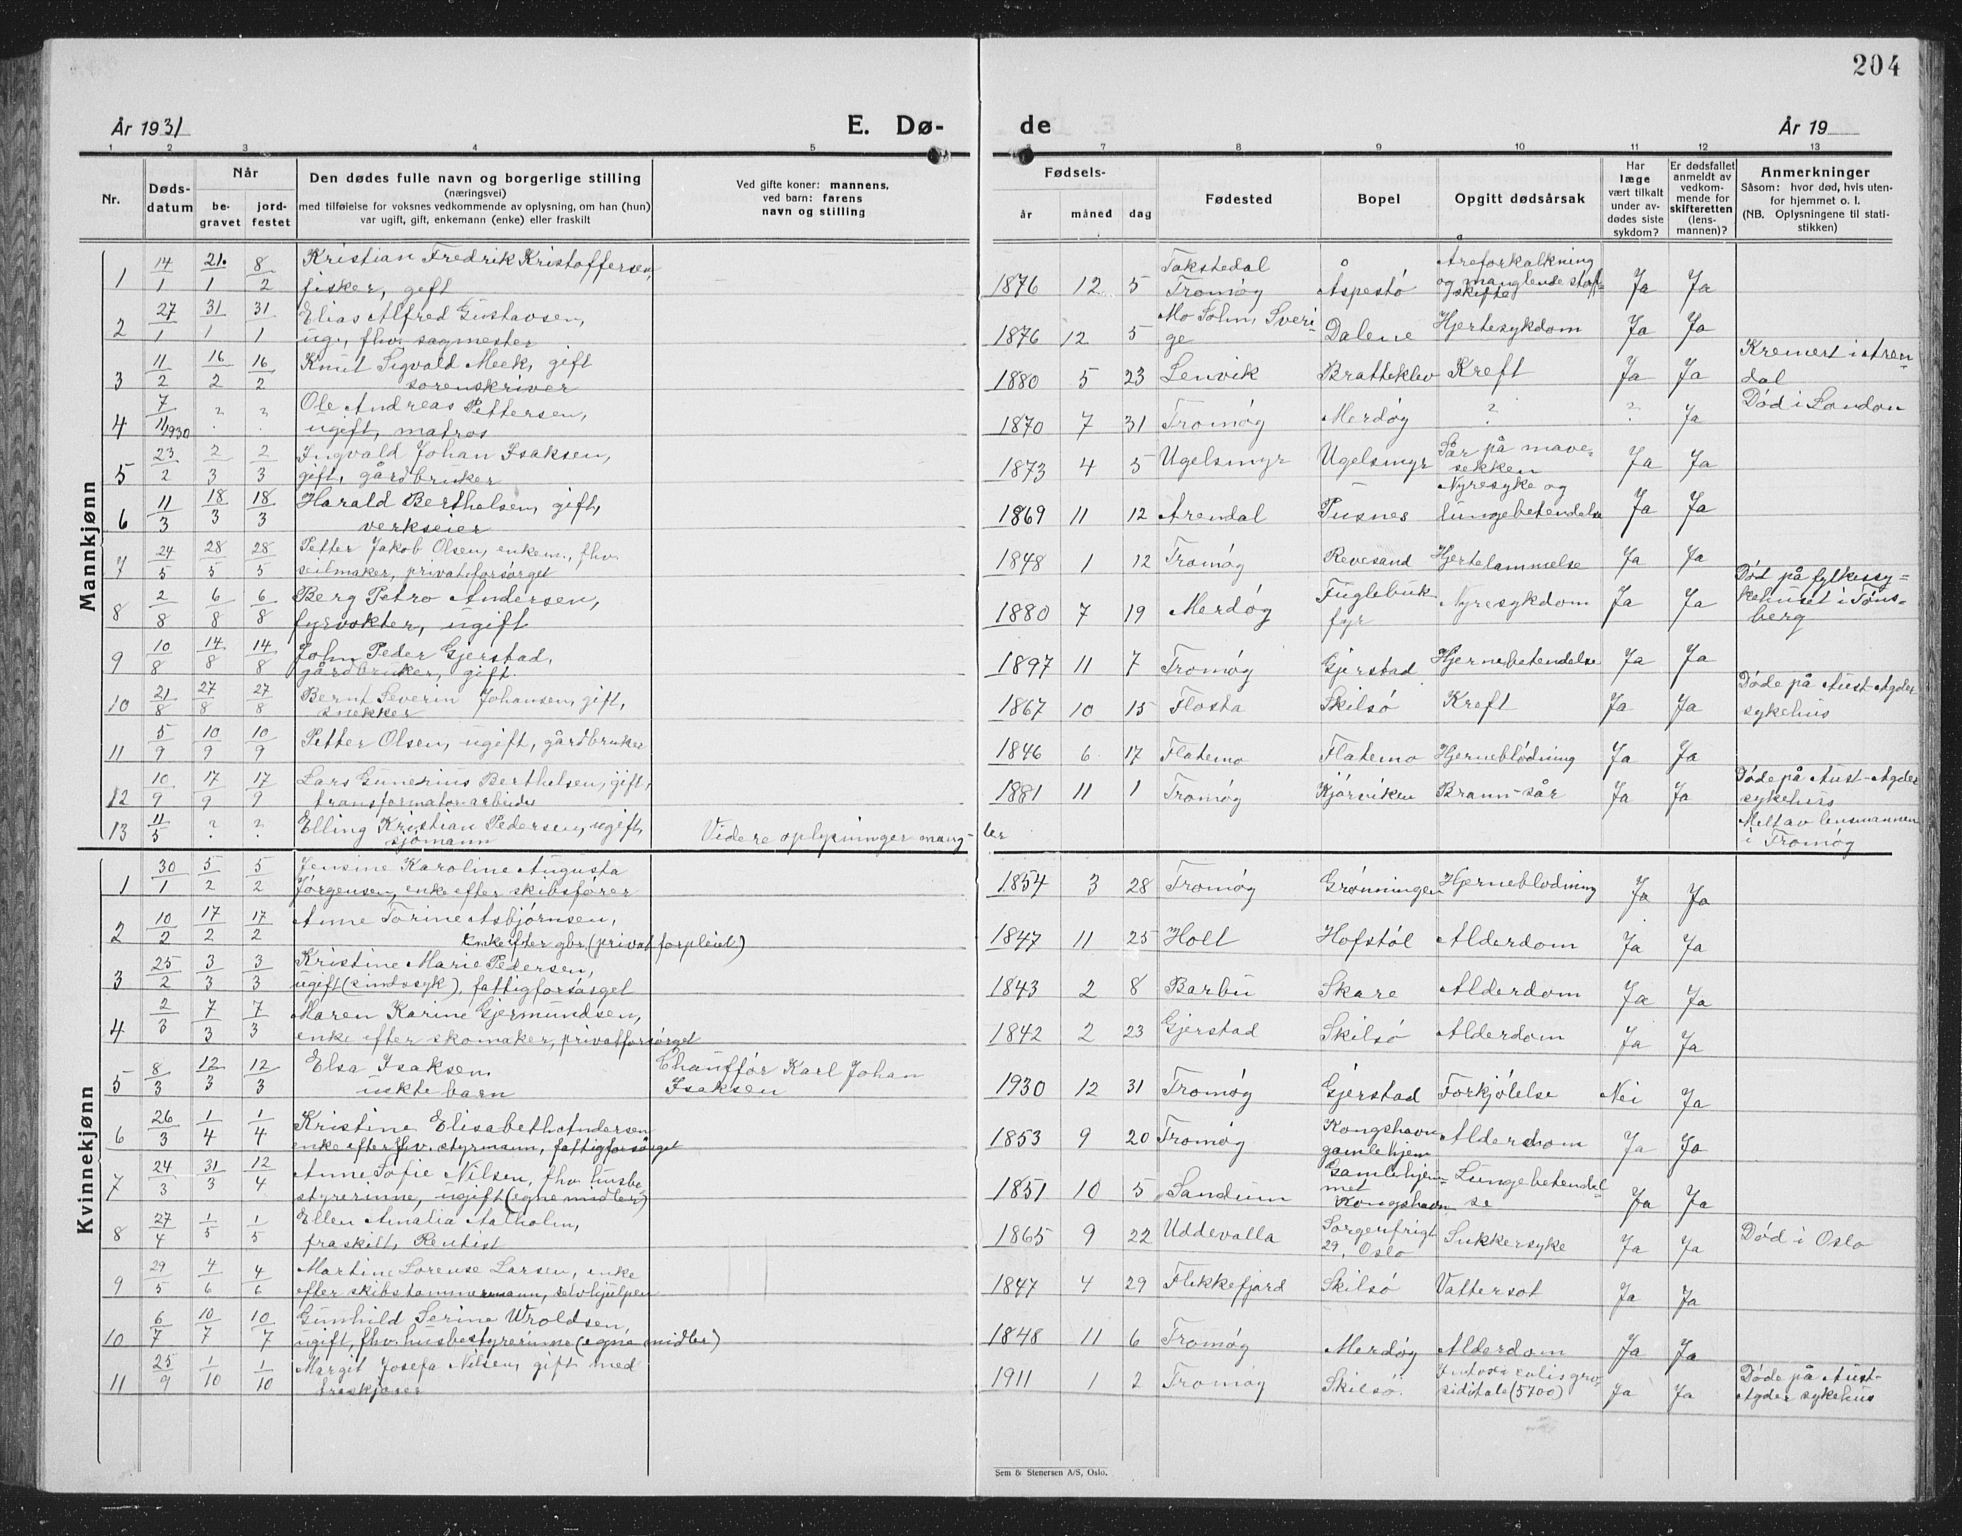 204
År 1931
E. Dø-
de
År 19
1 2 3 4 5 6 7 8 9 10 11 12 13
Nr.
Døds-
datum
Når
be-
gravet
jord-
festet
Den dødes fulle navn og borgerlige stilling
(næringsvei)
med tilføielse for voksnes vedkommende av oplysning, om han (hun)
var ugift, gift, enkemann (enke) eller fraskilt
Ved gifte koner: mannens,
ved barn: farens
navn og stilling
Fødsels-
år
måned
dag
Fødested
Bopel
Opgitt dødsårsak
Har
læge
vært tilkalt
under av-
dødes siste
sykdom?
Er dødsfallet
anmeldt av
vedkom-
mende for
skifteretten
(lens-
mannen)?
Anmerkninger
Såsom: hvor død, hvis uten-
for hjemmet o. l.
(NB. Oplysningene til stati-
stikken)
Mannkjønn
1 14/1 21./1 8/2 Kristian Fredrik Kristoffersen,
fisker, gift
1876 12 5 Tromøy Aspestø Åreforkalkning
og manglende stoff-
skifte Ja Ja
2 27/1 31/1 31/1 Elias Alfred Gustavsen,
ug., fhv. sagmester
1876 12 5 Mo Sohn, Sveri-
ge Dalene Hjertesykdom Ja Ja
3 11/2 16/2 16/2 Knut Sigvald Meek, gift
sorenskriver
1880 5 23 Lenvik Bratteklev Kreft Ja Ja Kremert i Aren-
dal
4 7/11 1930 ? ? Ole Andreas Pettersen,
ugift, matros
1870 7 31 Tromøy Merdøy ? ? Ja Død i London
5 23/2 2/3 2/3 Ingvald Johan Isaksen,
gift, gårdbruker
1873 4 5 Ugelsmyr Ugelsmyr Sår på mave-
sekken Ja Ja
6 11/3 18/3 18/3 Harald Berthelsen, gift,
verkseier
1869 11 12 Arendal Pusnes Nyresyke og
lungebetendelse Ja Ja
7 24/5 28/5 28/5 Petter Jakob Olsen, enkem., fhv.
seilmaker, privatforsørget
1848 1 12 Tromøy Revesand Hjertelammelse Ja Ja
8 2/8 6/8 6/8 Berg Petro Andersen,
fyrvokter, ugift
1880 7 19 Merdøy Fuglehuk
fyr Nyresykdom Ja Ja Død på fylkessy=
kehuset i Tøns-
berg
9 10/8 14/8 14/8 John Peder Gjerstad,
gårdbruker, gift.
1897 11 7 Tromøy Gjerstad Hjernebetendelse Ja Ja
10 21/8 27/8 27/8 Bernt Severin Johansen, gift,
snekker
1867 10 15 Flosta Skilsø Kreft Ja Ja Døde på Aust-Agder
sykehus
11 5/9 10/9 10/9 Petter Olsen, ugift, gårdbruker
1846 6 17 Flatemo Flatemo Hjerneblødning Ja Ja
12 10/9 17/9 17/9 Lars Gunerius Berthelsen, gift,
transformatorarbeider
1881 11 1 Tromøy Kjørviken Brann-sår Ja Ja Døde på Aust-Agder
sykehus
13 11/5 ? ? Elling Kristian Pedersen, ugift,
sjømann Videre oplysninger mang-
ler
Melt av lensmannen
i Tromøy
Kvinnekjønn
1 30/1 5/2 5/2 Jensine Karoline Augusta
Jørgensen, enke efter skibsfører
1854 3 28 Tromøy Grønningen Hjerneblødning Ja Ja
2 10/2 17/2 17/2 Anne Torine Asbjørnsen,
enke efter gbr. (privat forpleiet)
1847 11 25 Holt Hofstøl Alderdom Ja Ja
3 25/2 3/3 3/3 Kristine Marie Pedersen,
ugift (sindssyk), fattigforsørget
1843 2 8 Barbu Skare Alderdom Ja Ja
4 2/3 7/3 7/3 Maren Karine Gjermundsen,
enke efter skomaker, privatforsørget
1842 2 23 Gjerstad Skilsø Alderdom Ja Ja
5 8/3 12/3 12/3 Elsa Isaksen,
uekte barn Chauffør Karl Johan
Isaksen
1930 12 31 Tromøy Gjerstad Forkjølelse Nei Ja
6 26/3 1/4 1/4 Kristine Elisabeth Andersen
enke efter fhv. styrmann, fattigforsørget
1853 9 20 Tromøy Kongshavn
gamlehjem Alderdom Ja Ja
7 24/3 31/3 12/4 Anne Sofie Nilsen, fhv. husbe-
styrerinne, ugift (egne midler)
1851 10 5 Sandum Gamlehjem-
met
Kongshavn Lungebetendel-
se Ja Ja
8 27/4 1/5 1/5 Ellen Amalia Aalholm,
fraskilt, Rentist
1865 9 22 Uddevalla Sorgenfrigt
29, Oslo Sukkersyke Ja Ja Død i Oslo
9 29/5 4/6 4/6 Martine Lorense Larsen, enke
efter skibstømmermann, selvhjulpen
1847 4 29 Flekkefjord Skilsø Vattersot Ja Ja
10 6/7 10/7 10/7 Gunhild Serine Wroldsen,
ugift, fhv. husbestyrerinne (egne midler)
1848 11 6 Tromøy Merdøy Alderdom Ja Ja
11 25/9 1/10 1/10 Margit Josefa Nilsen, gift med
1911 1 2 Tromøy Skilsø Ja Ja Døde på Aust-
Agder sykehus
Sem & Stenersen A/S, Oslo.